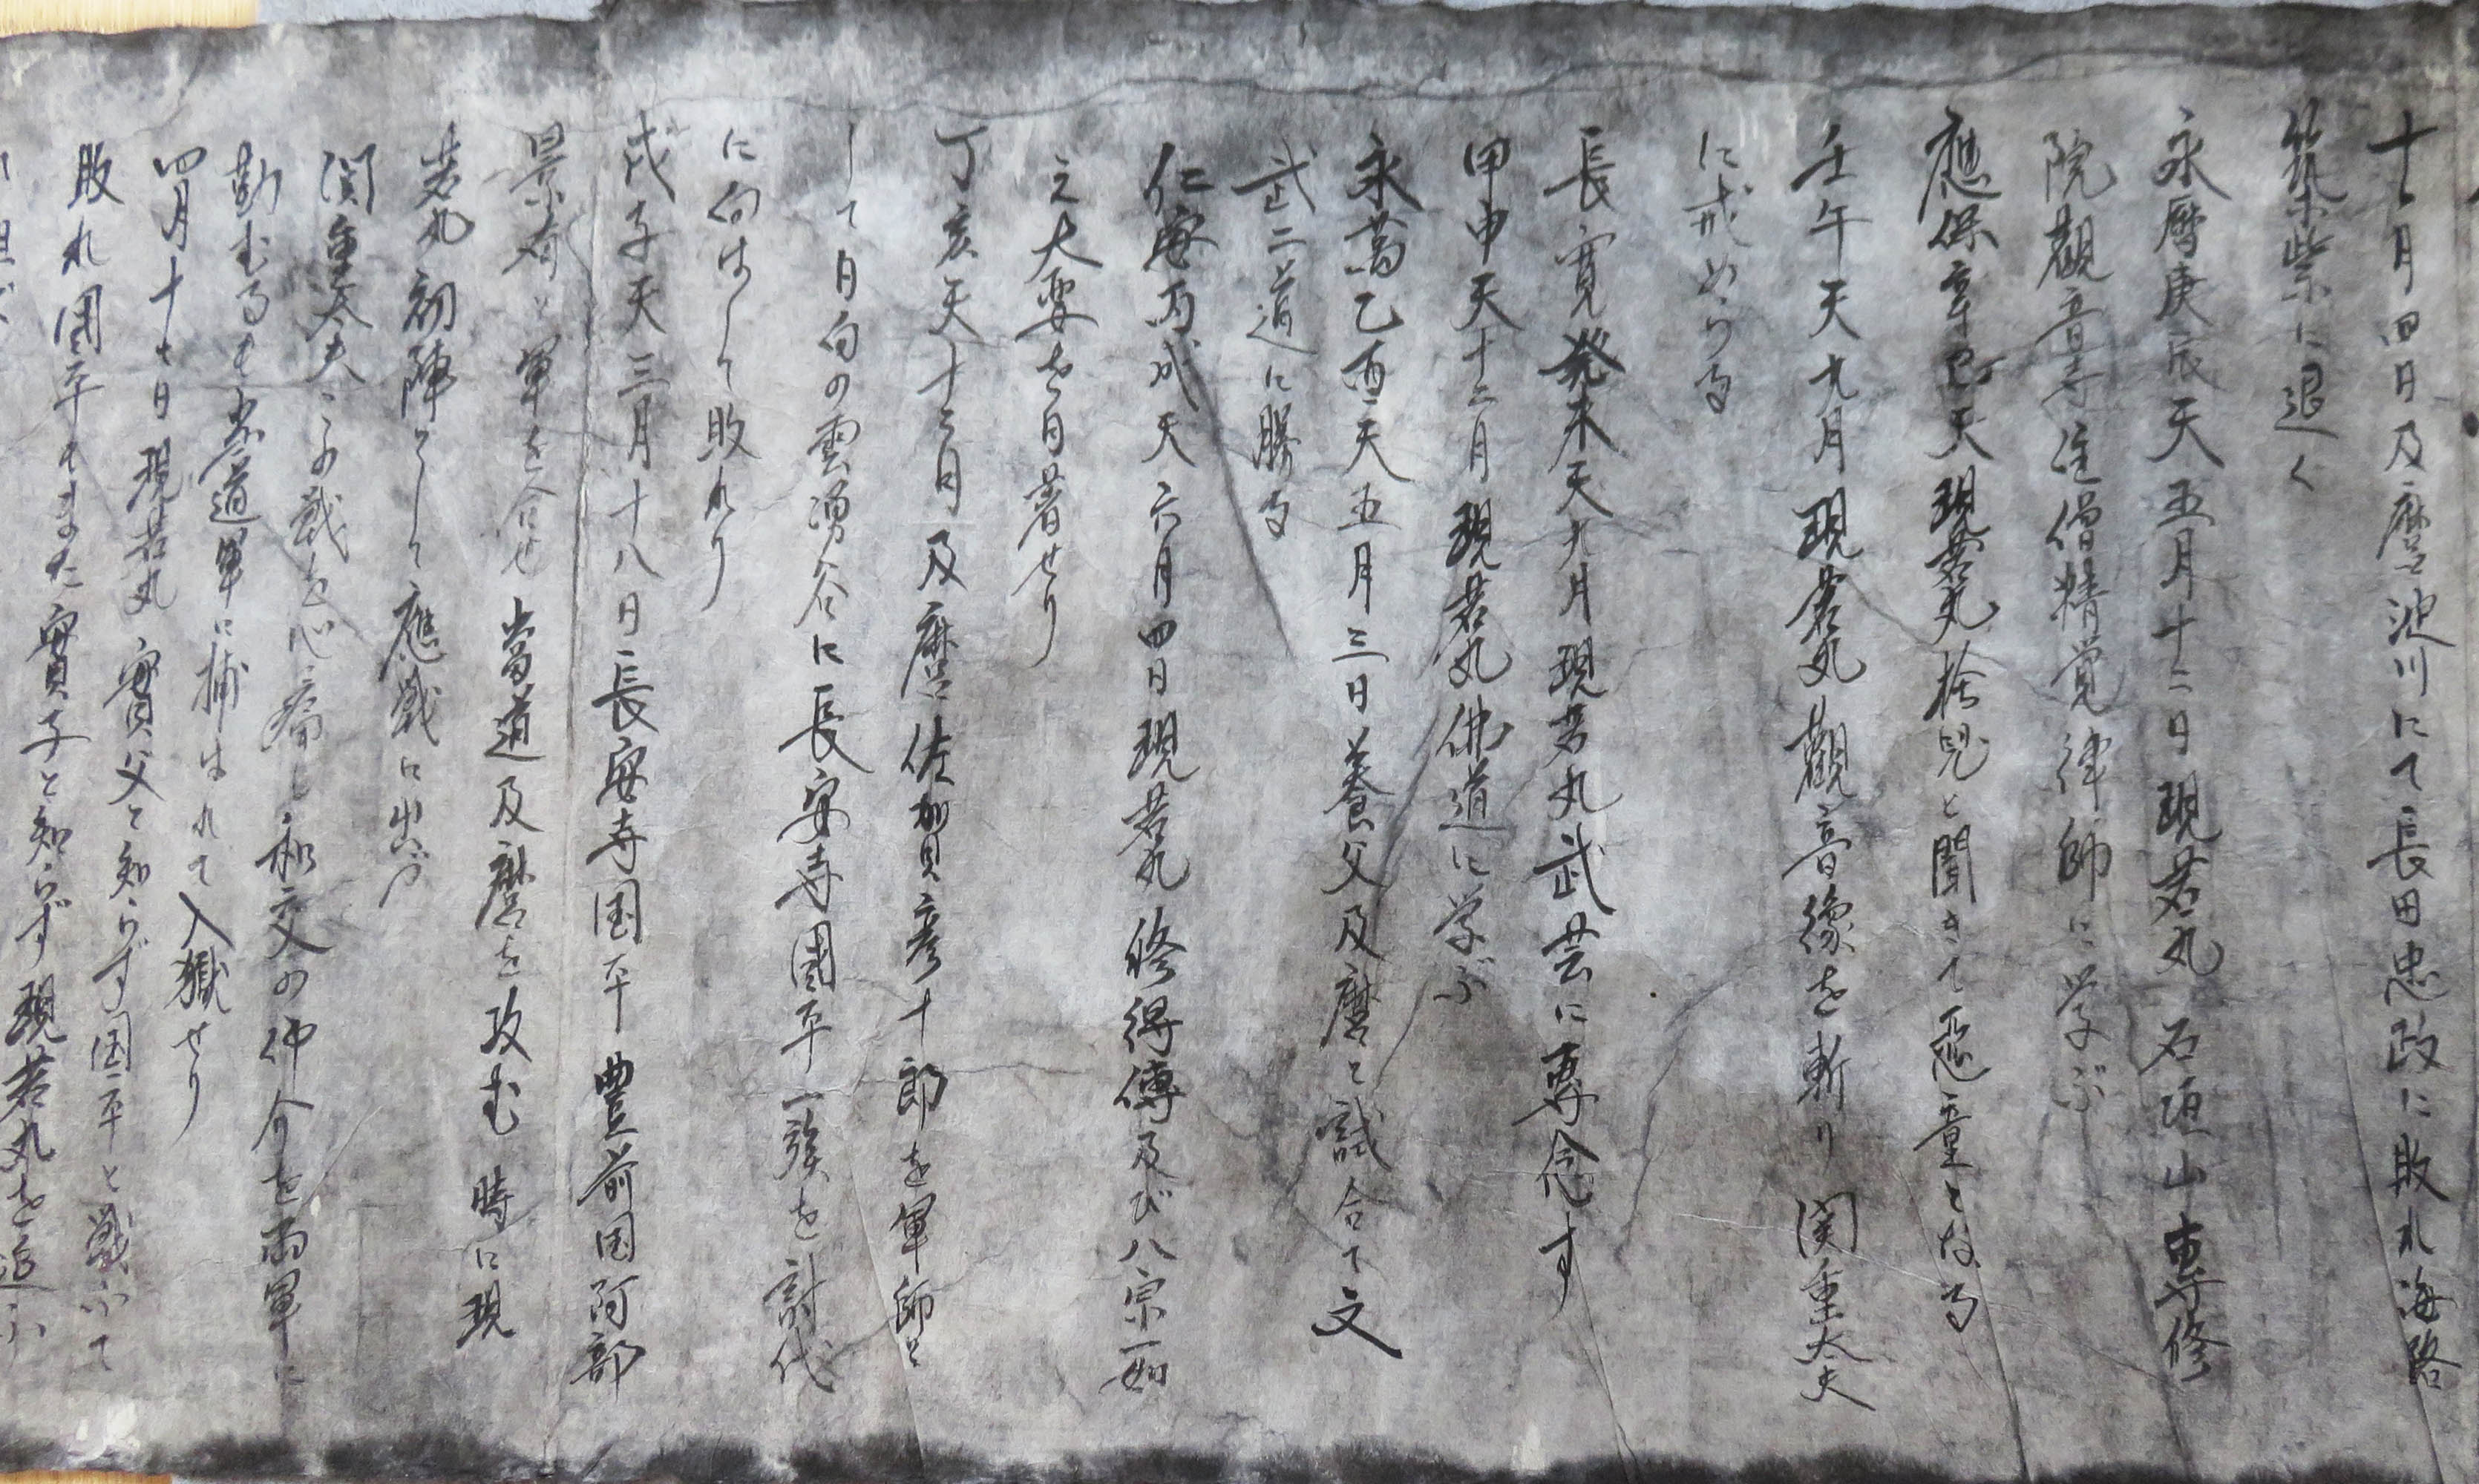 十二月四日及麿池川にて長田忠政に敗れ海路
筑紫に退く
永暦庚辰天五月十二日現若丸石垣山専修
院観音寺住僧精覚律師に学ぶ
應保辛巳天現若丸捨児と聞きて悪童となる
壬午天九月現若丸観音像を斬り関重太夫
に戒めらる
長寛癸未天九月現若丸武芸に専念す
甲申天十二月現若丸佛道に学ぶ
永萬乙酉天五月三日養父及麿と試合て文
武二道に勝る
仁安丙戌天六月四日現若丸修得傳及び八宗一如
之大要を著せり
丁亥天十二月及麿佐賀彦十郎を軍師と
して日向の雲湧谷に長安寺國平一族を討伐
に向はして敗れり
戊子天三月十八日長安寺国平豊前国阿部
景奇と軍を合せ當道及麿を攻む時に現
若丸初陣として應戦に出づ
関重太夫この戦を心痛し和交の仲介を両軍に
勤むるも當道軍に捕はれて入獄せり
四月十七日現若丸實父と知らず国平と戦ふて
敗れ国平もまた實子と知らず現若丸を追ふ